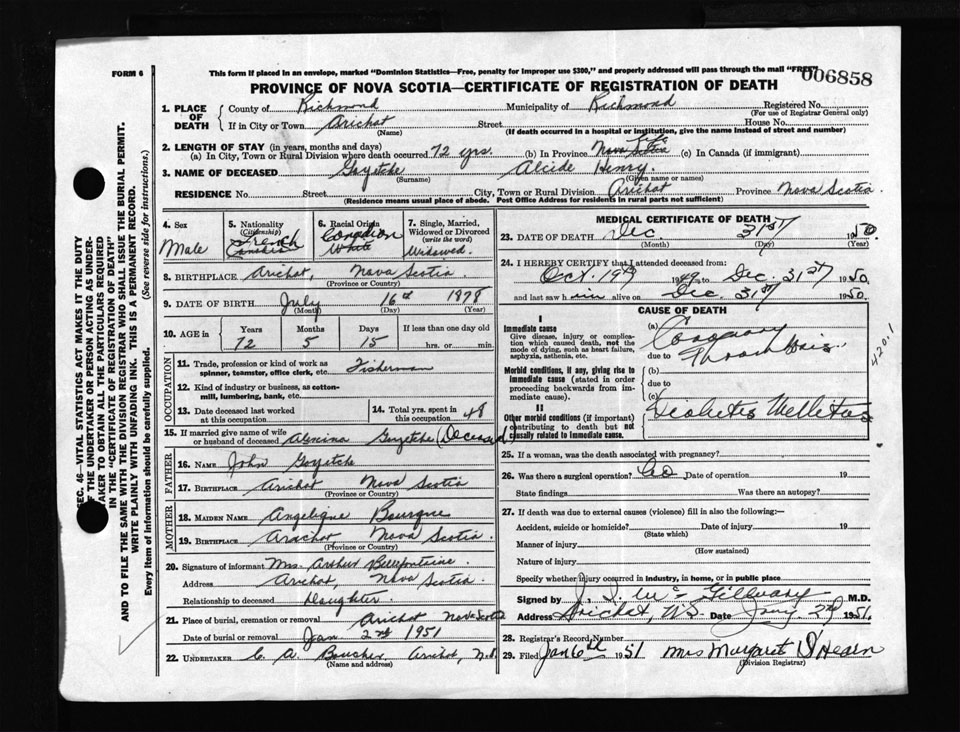 FORM 6
This form if placed in an envelope, marked "Dominion Statistics—Free, penalty for improper use $300," and properly addressed will pass through the mail "FREE"
006858
PROVINCE OF NOVA SCOTIA—CERTIFICATE OF REGISTRATION OF DEATH
SEC. 46—VITAL STATISTICS ACT MAKES IT THE DUTY
OF THE UNDERTAKER OR PERSON ACTING AS UNDER-
TAKER TO OBTAIN ALL THE PARTICULARS REQUIRED
IN THE "CERTIFICATE OF REGISTRATION OF DEATH"
AND TO FILE THE SAME WITH THE DIVISION REGISTRAR WHO SHALL ISSUE THE BURIAL PERMIT.
WRITE PLAINLY WITH UNFADING INK. THIS IS A PERMANENT RECORD.
Every item of information should be carefully supplied. (See reverse side for instructions.)
1. PLACE OF DEATH
County of Richmond Municipality of Richmond Registered No.
(For use of Registrar General only)
If in City or Town Arichat Street House No.
(Name) (If death occurred in a hospital or institution, give the name instead of street and number)
2. LENGTH OF STAY (in years, months and days)
(a) In City, Town or Rural Division where death occurred 72 yrs. (b) In Province life Nova Scotia (c) In Canada (if immigrant)
3. NAME OF DECEASED Goyetche Alcide Henry
(Surname) (Given name or names)
RESIDENCE No. Street City, Town or Rural Division Arichat Province Nova Scotia
(Residence means usual place of abode. Post Office Address for residents in rural parts not sufficient)
4. Sex
Male
5. Nationality (Citizenship)
French
Canadian
6. Racial Origin
Canadian
White
7. Single, Married, Widowed or Divorced (write the word)
Widowed.
8. BIRTHPLACE Arichat, Nova Scotia.
(Province or Country)
9. DATE OF BIRTH July 16th 1878
(Month) (Day) (Year)
10. AGE in Years Months Days If less than one day old
72 5 15 hrs. or min.
OCCUPATION
11. Trade, profession or kind of work as spinner, teamster, office clerk, etc. Fisherman
12. Kind of industry or business, as cotton-mill, lumbering, bank, etc.
13. Date deceased last worked at this occupation
14. Total yrs. spent in this occupation 48
15. If married give name of wife or husband of deceased Goyetche (Deceased)
FATHER
16. NAME John Goyetche
17. BIRTHPLACE Arichat Nova Scotia
(Province or Country)
MOTHER
18. MAIDEN NAME Angelique Bourque
19. BIRTHPLACE Arachat Nova Scotia.
(Province or Country)
20. Signature of informant Mrs. Arthur Bellefontaine.
Address Arichat, Nova Scotia.
Relationship to deceased Daughter.
21. Place of burial, cremation or removal Arichat Nova Scotia
Date of burial or removal Jan. 2nd 1951
22. UNDERTAKER C. A. Boucher Arichat, N.S.
(Name and address)
MEDICAL CERTIFICATE OF DEATH
23. DATE OF DEATH Dec. 31st 1950
(Month) (Day) (Year)
24. I HEREBY CERTIFY that I attended deceased from:
Oct. 19th 1949 to Dec. 31st 1950
and last saw him alive on Dec. 31st 1950.
CAUSE OF DEATH
I
Immediate cause
Give disease, injury or complication which caused death, not the mode of dying, such as heart failure, asphyxia, asthenia, etc.
(a) Coronary
due to Thrombosis.
4201
Morbid conditions, if any, giving rise to immediate cause (stated in order proceeding backwards from immediate cause).
(b)
due to
(c)
II
Other morbid conditions (if important) contributing to death but not causally related to immediate cause.
Diabetes Mellitus
25. If a woman, was the death associated with pregnancy?
26. Was there a surgical operation? Date of operation 19
State findings Was there an autopsy?
27. If death was due to external causes (violence) fill in also the following:—
Accident, suicide or homicide? Date of injury 19
(State which)
Manner of injury
(How sustained)
Nature of injury
Specify whether injury occurred in industry, in home, or in public place
Signed by M.D.
Address Arichat, N.S. Date Jany. 2nd 1951.
28. Registrar's Record Number
29. Filed Jan 6th 1951 Mrs Margaret D Hearn
(Division Registrar)